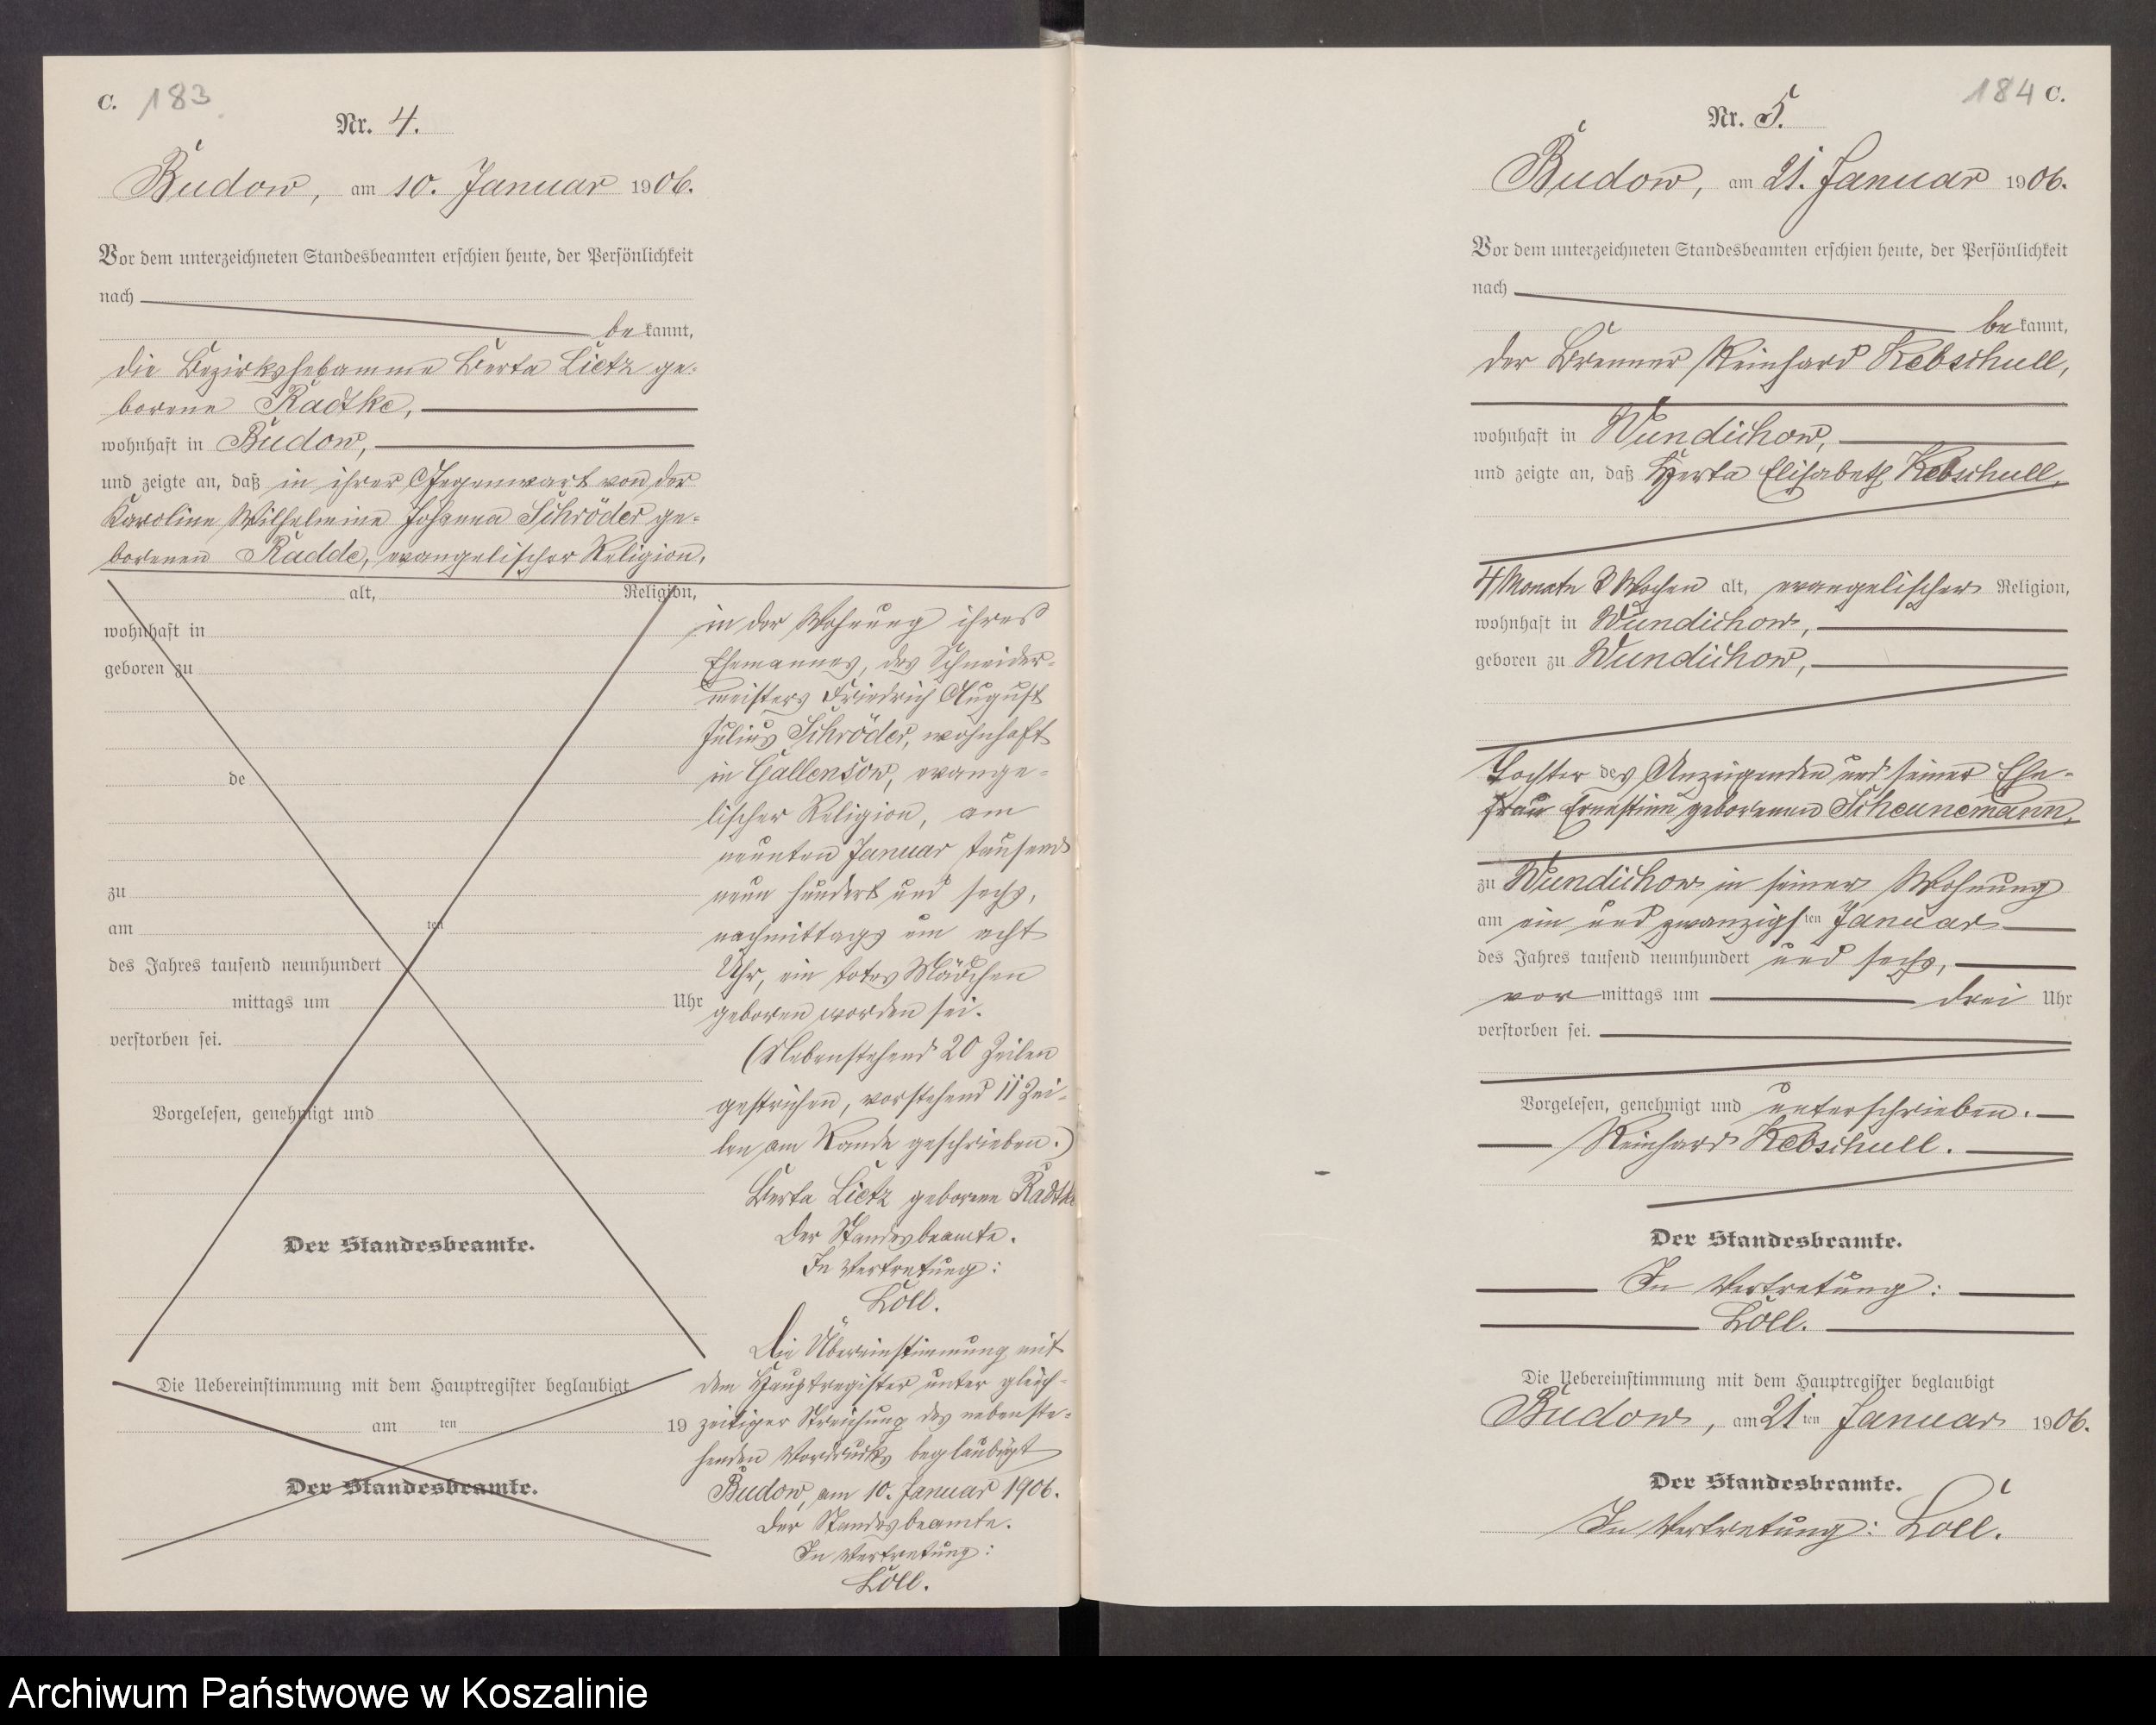 C. 183
Nr. 4.
Budow, am 10. Januar 1906.
Vor dem unterzeichneten Standesbeamten erschien heute, der Persönlichkeit
nach
be kannt,
die Bezirkshebamme Berta Lietz ge-
borene Radtke,
wohnhaft in Budow,
und zeigte an, daß in ihrer Gegenwart von der
Karoline Wilhelmine Johanna Schröder ge-
borenen Radde, evangelischer Religion,
alt, Religion,
wohnhaft in
geboren zu
de
zu
am ten
des Jahres tausend neunhundert
mittags um Uhr
verstorben sei.
Vorgelesen, genehmigt und
Der Standesbeamte.
Die Uebereinstimmung mit dem Hauptregister beglaubigt
am ten 19
Der Standesbeamte.
in der Wohnung ihres
Ehemannes, des Schneider-
meisters Friedrich August
Julius Schröder, wohnhaft
in Gallensow, evange-
lischer Religion, am
neunten Januar tausend
neun hundert und sechs,
nachmittags um acht
Uhr, ein totes Mädchen
geboren worden sei.
(Nebenstehend 20 Zeilen
gestrichen, vorstehend 11 Zei-
len am Rande geschrieben.)
Berta Lietz geborene Radtke
Der Standesbeamte.
In Vertretung:
Löll.
Die Übereinstimmung mit
dem Hauptregister unter gleich-
zeitiger Streichung des nebenste-
henden Vordrucks beglaubigt
Budow, am 10. Januar 1906.
Der Standesbeamte.
In Vertretung:
Löll.
184 C.
Nr. 5.
Budow, am 21. Januar 1906.
Vor dem unterzeichneten Standesbeamten erschien heute, der Persönlichkeit
nach
be kannt,
der Brenner Reinhard Kebschull,
wohnhaft in Wundichow,
und zeigte an, daß Herta Elisabeth Kebschull,
4 Monate 3 Wochen alt, evangelischer Religion,
wohnhaft in Wundichow,
geboren zu Wundichow,
Tochter des Anzeigenden und seiner Ehe-
frau Ernestine geborenen Scheunemann,
zu Wundichow in seiner Wohnung
am ein und zwanzigsten Januar
des Jahres tausend neunhundert und sechs,
vor mittags um drei Uhr
verstorben sei.
Vorgelesen, genehmigt und unterschrieben.
Reinhard Kebschull.
Der Standesbeamte.
In Vertretung:
Löll.
Die Uebereinstimmung mit dem Hauptregister beglaubigt
Budow, am 21 ten Januar 1906.
Der Standesbeamte.
In Vertretung: Löll.
Archiwum Państwowe w Koszalinie